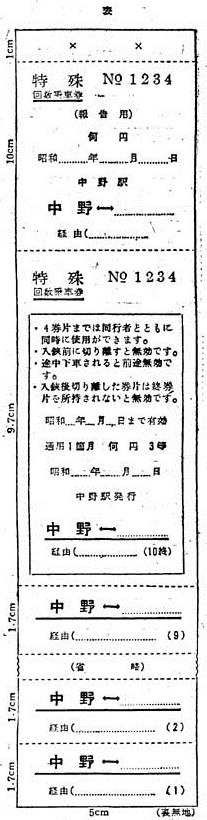 表
1cm
× ×
特殊 No 1234
回数乗車券
(報告用)
何円
昭和……年……月……日
中野駅
中野↔…………
経由(…………
10cm
特殊 No 1234
回数乗車券
・4券片までは同行者とともに
同時に使用ができます。
・入鋏前に切り離すと無効です。
・途中下車されると前途無効で
す。
・入鋏後切り離した券片は終券
片を所持されないと無効です。
昭和……年……月……日まで有効
通用1箇月 何円 3等
昭和……年……月……日
中野駅発行
中野↔…………
経由(…………(10終)
9.7cm
中野↔…………
経由(…………(9)
1.7cm
(省略)
中野↔…………
経由(…………(2)
1.7cm
中野↔…………
経由(…………(1)
1.7cm
5cm (裏無地)